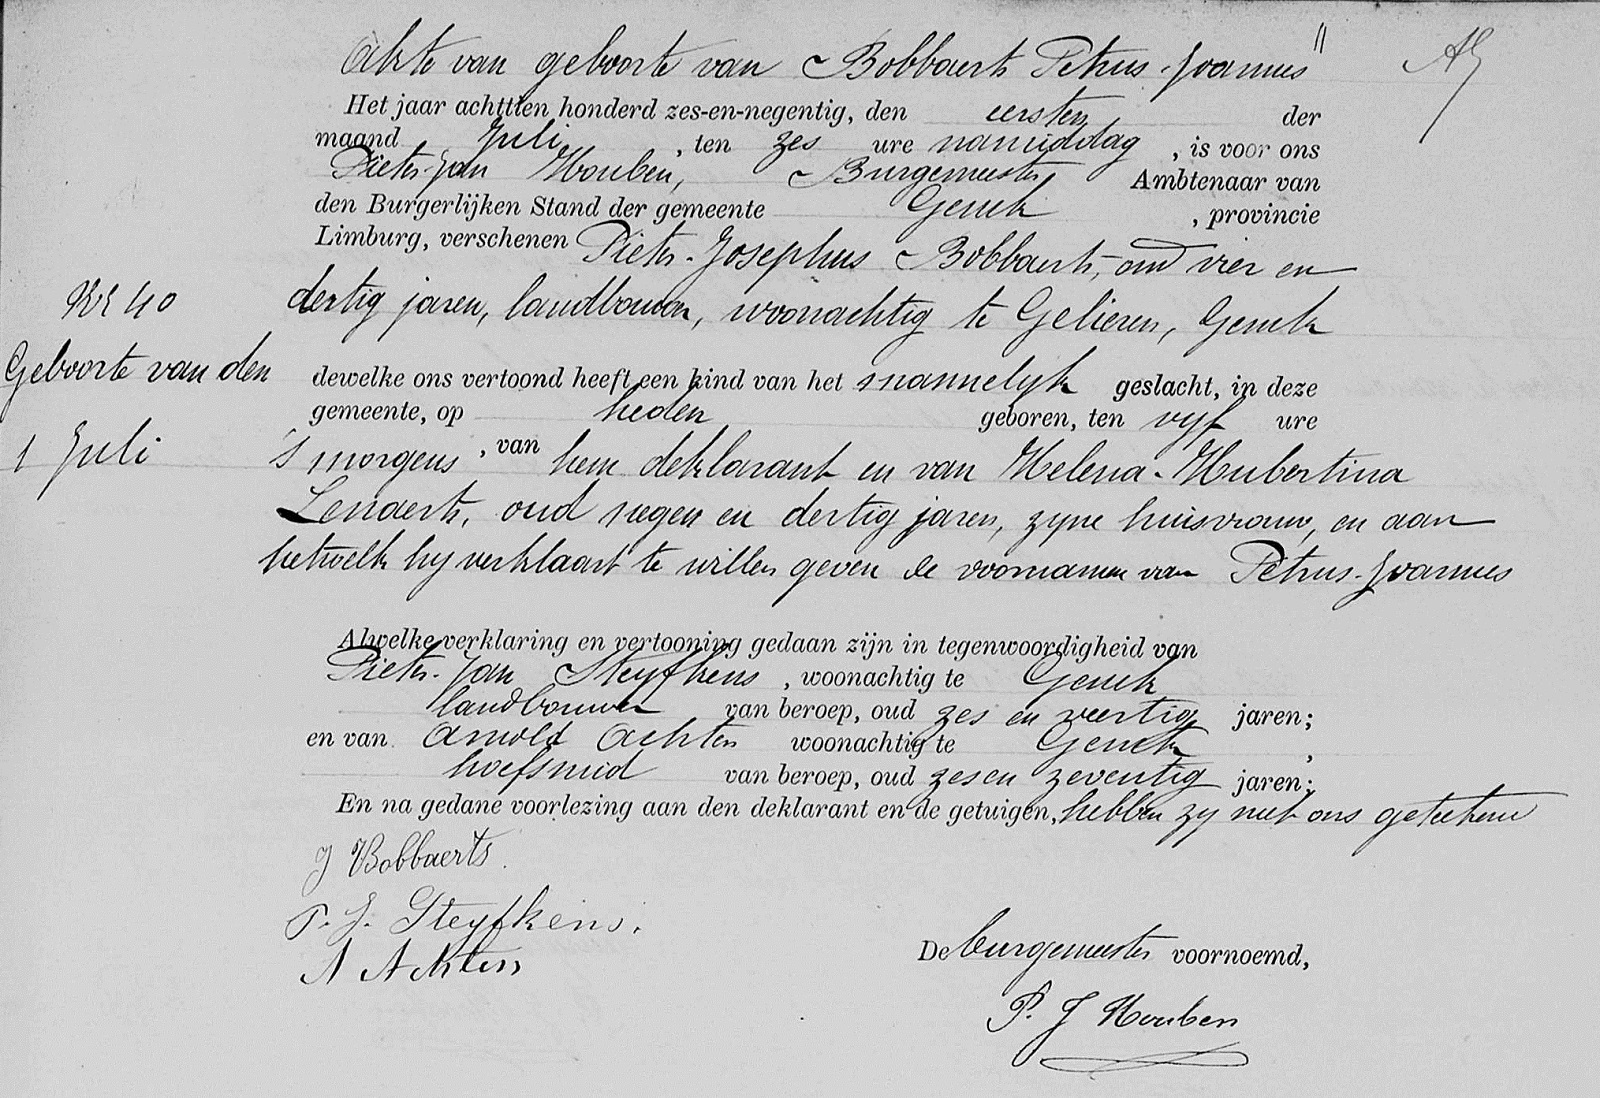 Akte van geboorte van Bobbaerts Petrus-Joannes
Het jaar achttien honderd zes-en-negentig, den eersten der
maand Juli, ten zes ure namiddag, is voor ons
Pieter-Jan Houben, Burgemeester Ambtenaar van
den Burgerlijken Stand der gemeente Genck, provincie
Limburg, verschenen Pieter-Josephus Bobbaerts, oud vier en
dertig jaren, landbouwer, woonachtig te Gelieren, Genck
Nr 40
Geboorte van den
1 Juli
dewelke ons vertoond heeft een kind van het mannelyk geslacht, in deze
gemeente, op heden geboren, ten vyf ure
's morgens, van hem deklarant en van Helena-Hubertina
Lenaerts, oud negen en dertig jaren, zyne huisvrouw, en aan
hetwelk hy verklaart te willen geven de voornamen van Petrus-Joannes
Alwelke verklaring en vertooning gedaan zijn in tegenwoordigheid van
Pieter-Jan Steyfkens, woonachtig te Genck
landbouwer van beroep, oud zes en veertig jaren;
en van Arnold Achten woonachtig te Genck,
hoefsmid van beroep, oud zes en zeventig jaren;
En na gedane voorlezing aan den deklarant en de getuigen, hebben zy met ons geteekend
J Bobbaerts.
P. J. Steyfkens.
A Achten
De burgemeester voornoemd,
P. J Houben